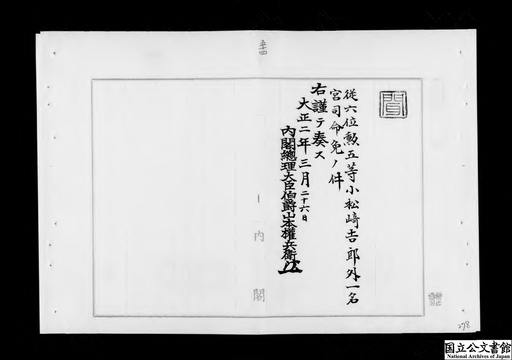 聞
従六位勲五等小松崎吉郎外一名
宮司命免ノ件
右謹テ奏ス
大正二年三月二十六日
内閣總理大臣伯爵山本權兵衞
内閣
278
国立公文書館
National Archives of Japan